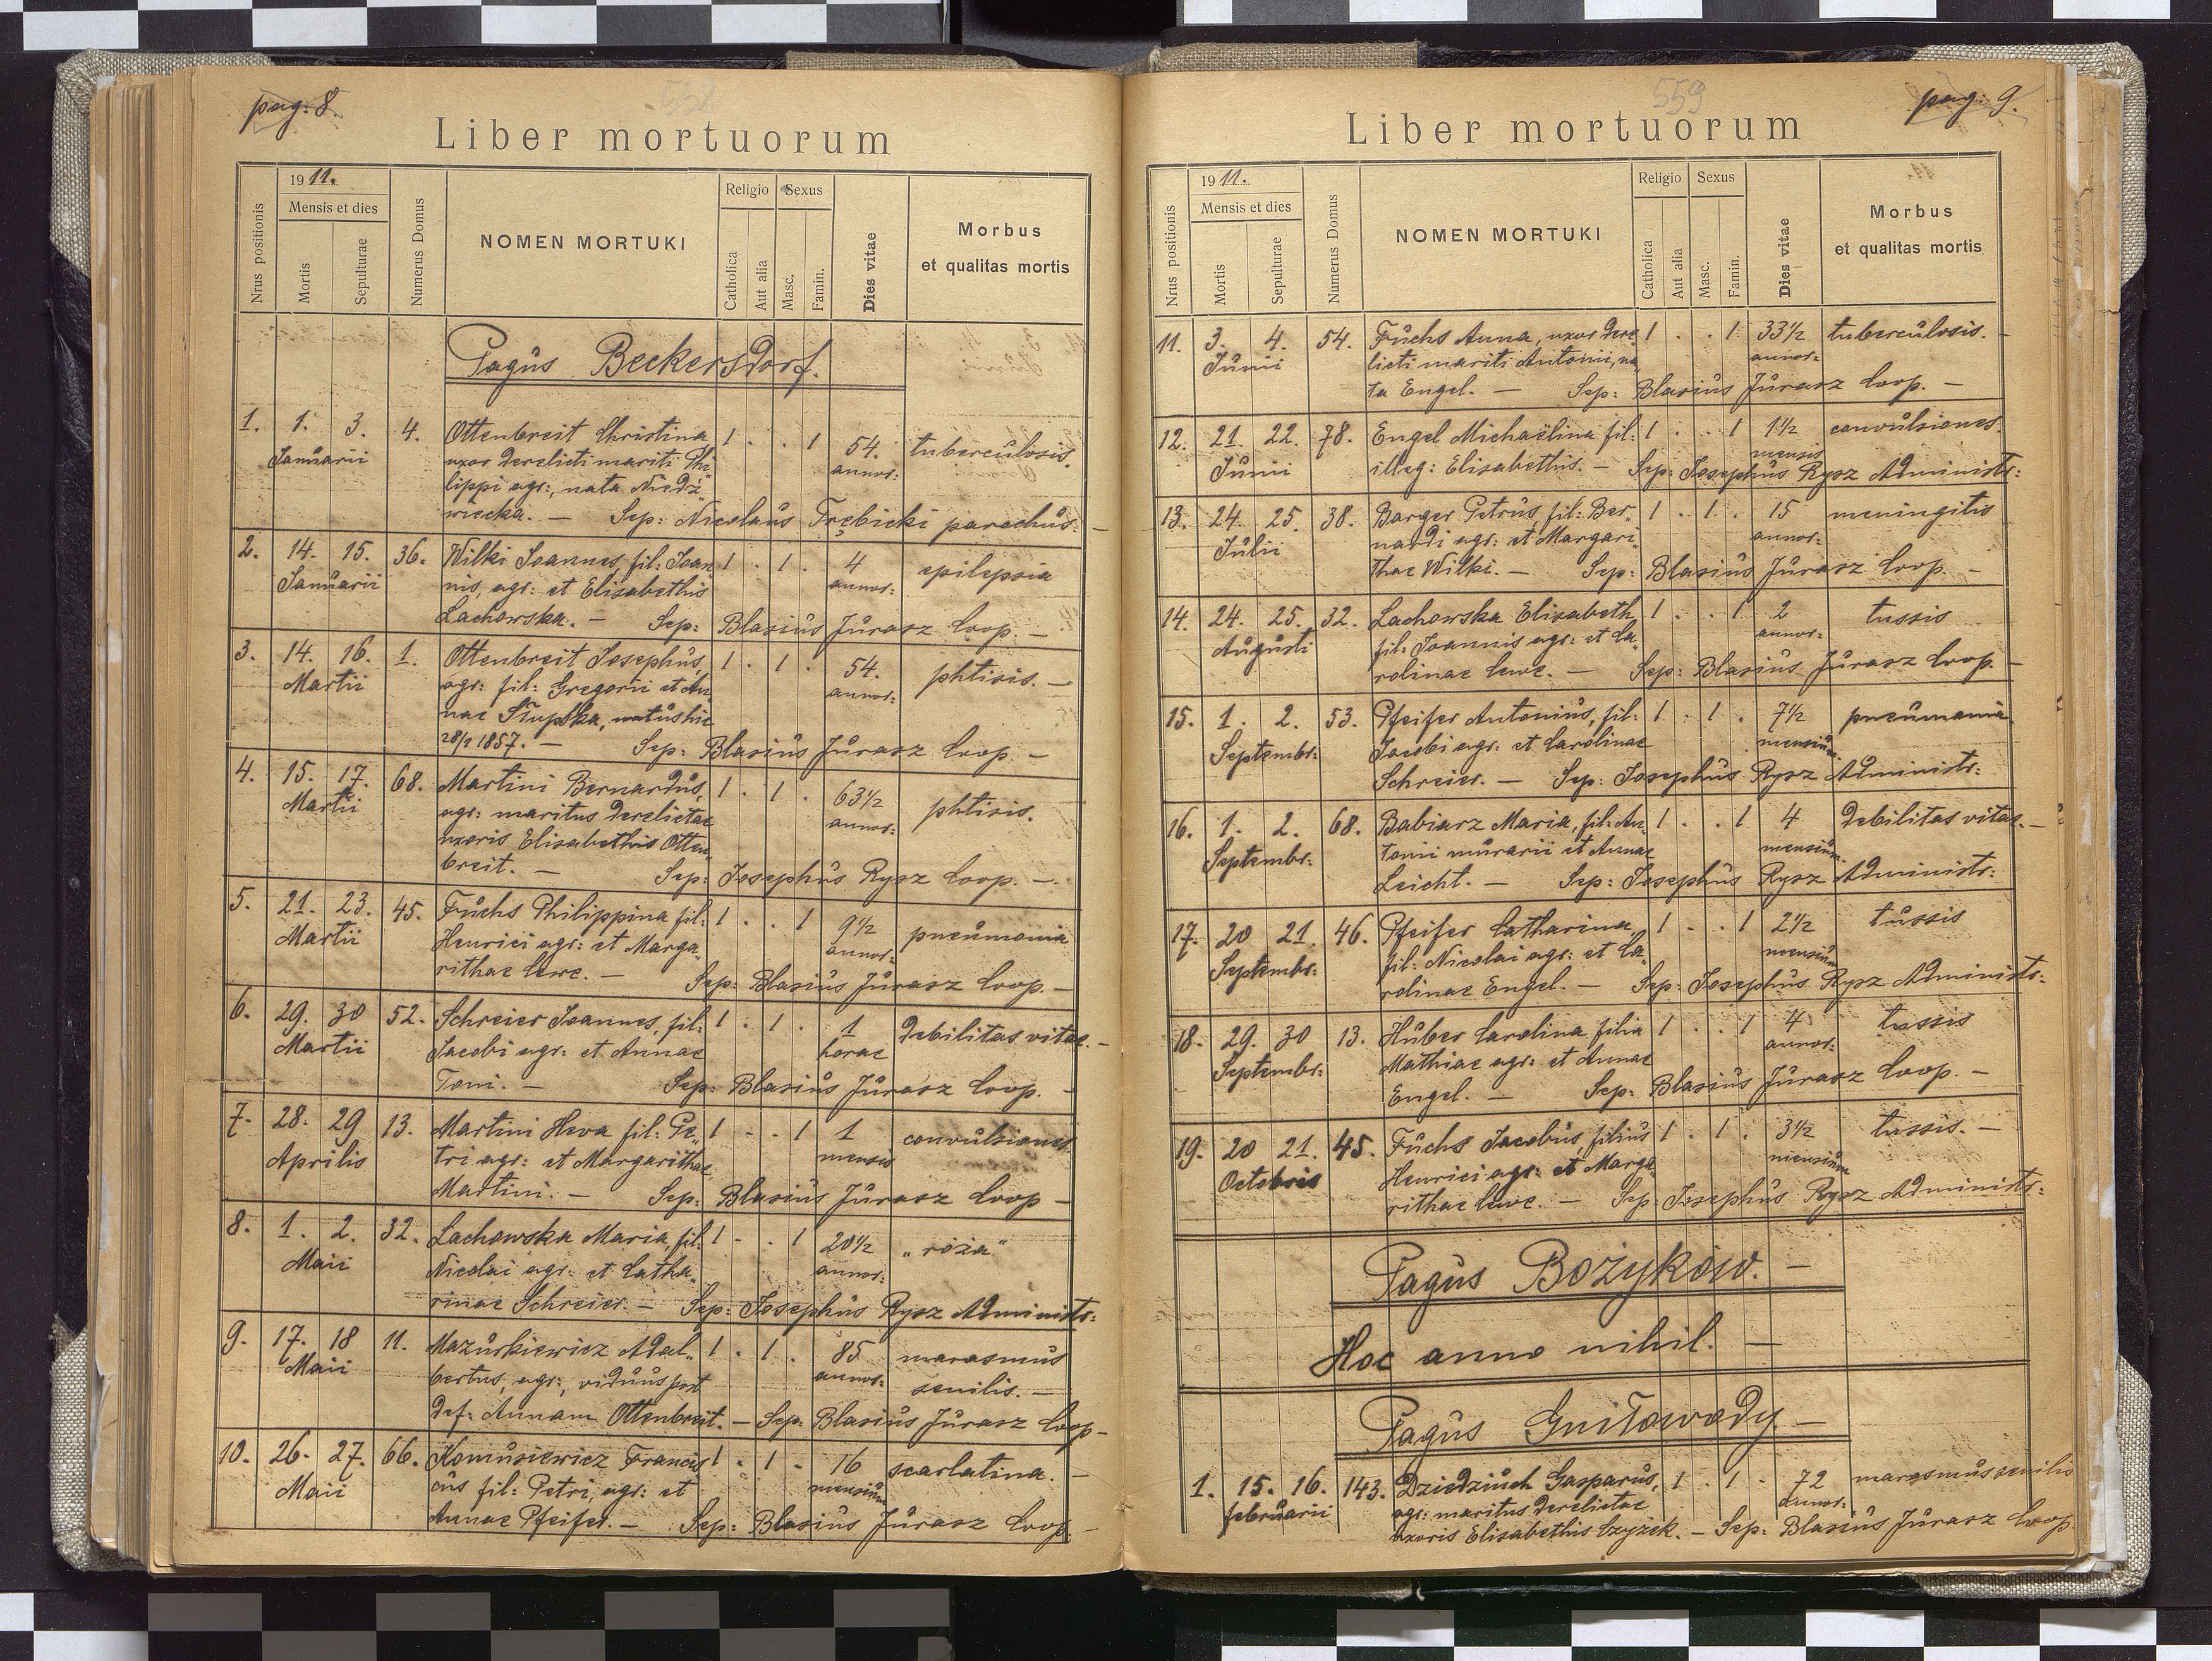 pag. 8.
558
Liber mortuorum
Nrus positionis
1911.
Mensis et dies
Mortis
Sepulturae
Numerus Domus
NOMEN MORTUKI
Religio
Catholica
Aut alia
Sexus
Masc.
Famin.
Dies vitae
Morbus
et qualitas mortis
Pagus Beckersdorf.
1. 1. 3. 4. Ottenbreit Christina 1 . . 1 54. tuberculosis.
Januarii uxor derelicti mariti Phi„ annor:
lippi agr:, nata Niedź„
wiecka. — Sep: Nicolaus Trębicki parochus. —
2. 14. 15. 36. Wilki Joannes, fil: Joan„ 1 . 1 . 4 epilepsia
Januarii nis, agr: et Elisabethis annor:
Lachowska. — Sep: Blasius Jurasz Coop. —
3. 14. 16. 1. Ottenbreit Josephus, 1 . 1 . 54. phtisis. —
Martii agr: fil: Gregorii et An„ annor:
nae Słupska, natus hic
28/2 1857. — Sep: Blasius Jurasz Coop. —
4. 15. 17. 68. Martini Bernardus, 1 . 1 . 63 1/2 phtisis.
Martii agr: maritus derelictae annor:
uxoris Elisabethis Otten„
breit. — Sep: Josephus Rysz Coop. —
5. 21. 23. 45. Fuchs Philippina fil: 1 . . 1 9 1/2 pneumonia
Martii Henrici agr: et Marga„ annor:
rithae Lewc. — Sep: Blasius Jurasz Coop. —
6. 29. 30 52. Schreier Joannes, fil: 1 . 1 . 1 debilitas vitae. —
Martii Jacobi agr: et Annae horae
Toni. — Sep: Blasius Jurasz Coop. —
7. 28. 29 13. Martini Heva fil: Pe„ 1 . . 1 1 convulsiones
Aprilis tri agr: et Margarithae mensis
Martini. — Sep: Blasius Jurasz Coop —
8. 1. 2. 32. Lachowska Maria, fil: 1 . . 1 20 1/2 „róża"
Maii Nicolai agr: et Catha„ annor:
rinae Schreier. — Sep: Josephus Rysz Administr:
9. 17. 18 11. Mazurkiewicz Adal„ 1 . 1 . 85 marasmus
Maii bertus, agr:, viduus post annor: senilis. —
def: Annam Ottenbreit. — Sep: Blasius Jurasz Coop —
10. 26. 27. 66. Komusiewicz Francis 1 . 1 . 16 scarlatina. —
Maii cus fil: Petri, agr: et mensium
Annae Pfeifer. — Sep: Blasius Jurasz Coop. —
559
pag. 9.
Liber mortuorum
Nrus positionis
1911.
Mensis et dies
Mortis
Sepulturae
Numerus Domus
NOMEN MORTUKI
Religio
Catholica
Aut alia
Sexus
Masc.
Famin.
Dies vitae
Morbus
et qualitas mortis
11. 3. 4. 54. Fuchs Anna, uxor dere 1 . . 1 33 1/2 tuberculosis. —
Junii licti mariti Antonii, na annor:
ta Engel. — Sep: Blasius Jurasz Coop. —
12. 21. 22. 78. Engel Michaëlina fil: 1 . . 1 1 1/2 convulsiones.
Junii illeg: Elisabethis. — mensis Sep: Josephus Rysz Administr:
13. 24. 25. 38. Barger Petrus, fil: Ber„ 1 . 1 . 15 meningitis
Julii nardi agr: et Margari„ annor:
thae Wilki. — Sep: Blasius Jurasz Coop. —
14. 24. 25. 32. Lachowska Elisabeth, 1 . . 1 2 tussis
Augusti fil: Joannis agr: et Ca„ annor:
rolinae Lewc. — Sep: Blasius Jurasz Coop. —
15. 1. 2. 53. Pfeifer Antonius, fil: 1 . 1 . 7 1/2 pneumonia
Septembr: Jacobi agr: et Carolinae mensium
Schreier. — Sep: Josephus Rysz Administr:
16. 1. 2. 68. Babiarz Maria, fil: An„ 1 . . 1 4 debilitas vitae. —
Septembr: tonii murarii et Annae mensium
Leicht. — Sep: Josephus Rysz Administr:
17. 20 21. 46. Pfeifer Catharina, 1 . . 1 2 1/2 tussis
Septembr: fil: Nicolai agr: et Ca„ mensium
rolinae Engel. — Sep: Josephus Rysz Administr:
18. 29. 30 13. Huber Carolina filia 1 . . 1 4 tussis
Septembr: Mathiae agr: et Annae annor:
Engel. — Sep: Blasius Jurasz Coop. —
19. 20 21. 45. Fuchs Jacobus, filius 1 . 1 . 3 1/2 tussis. —
Octobris Henrici agr: et Marga„ mensium
rithae Lewc. — Sep: Josephus Rysz Administr:
Pagus Bożyków. —
Hoc anno nihil. —
Pagus Gniłowody —
1. 15. 16. 143. Dziedziuch Gasparus, 1 . 1 . 72 marasmus senilis
februarii agr: maritus derelictae annor:
uxoris Elisabethis Czyżek. — Sep: Blasius Jurasz Coop.